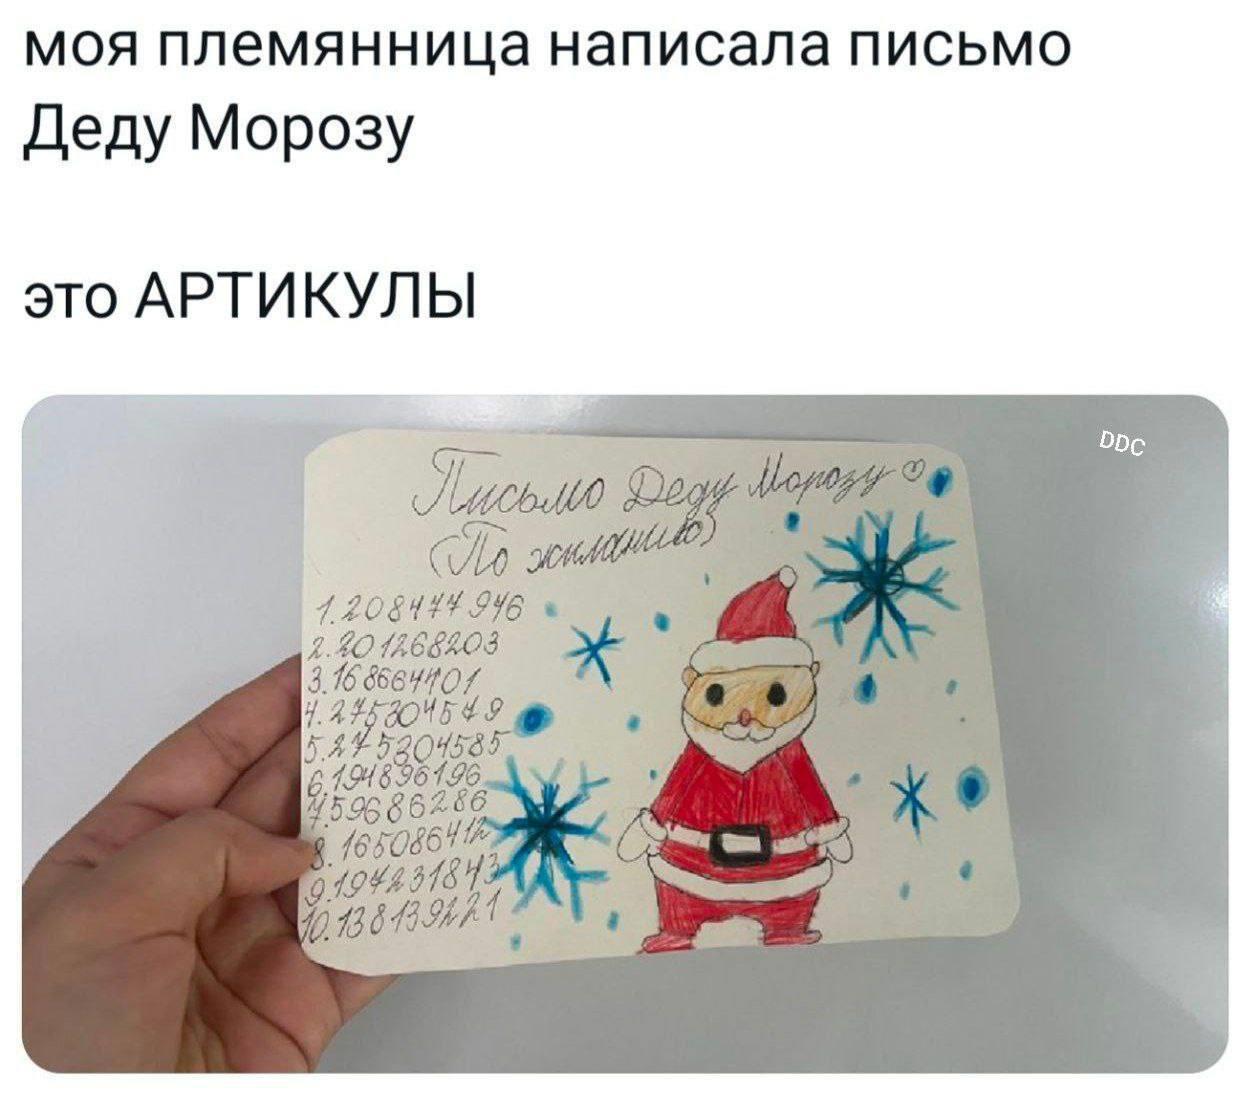 моя племянница написала письмо
Деду Морозу
это АРТИКУЛЫ
DDC
Письмо Деду Морозу ♡
(По желанию)
1. 208477946
2. 201268203
3. 168664701
4. 275304579
5. 275304585
6. 194896196
7. 59686286
8. 165086412
9. 197231843
10. 138139221